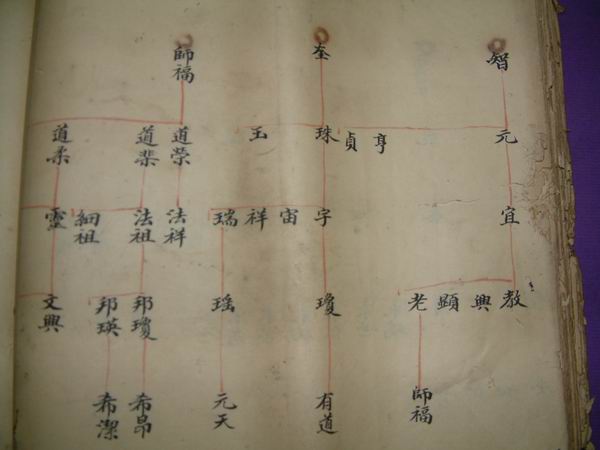 智
奎
師福
元
亨
貞
珠
玉
道榮
道棐
道柔
宜
宇
宙
祥
瑞
法祥
法祖
細祖
靈
教
興
顯
老
瓊
瑶
邦瓊
邦瑛
文興
師福
有道
元天
希昂
希潔